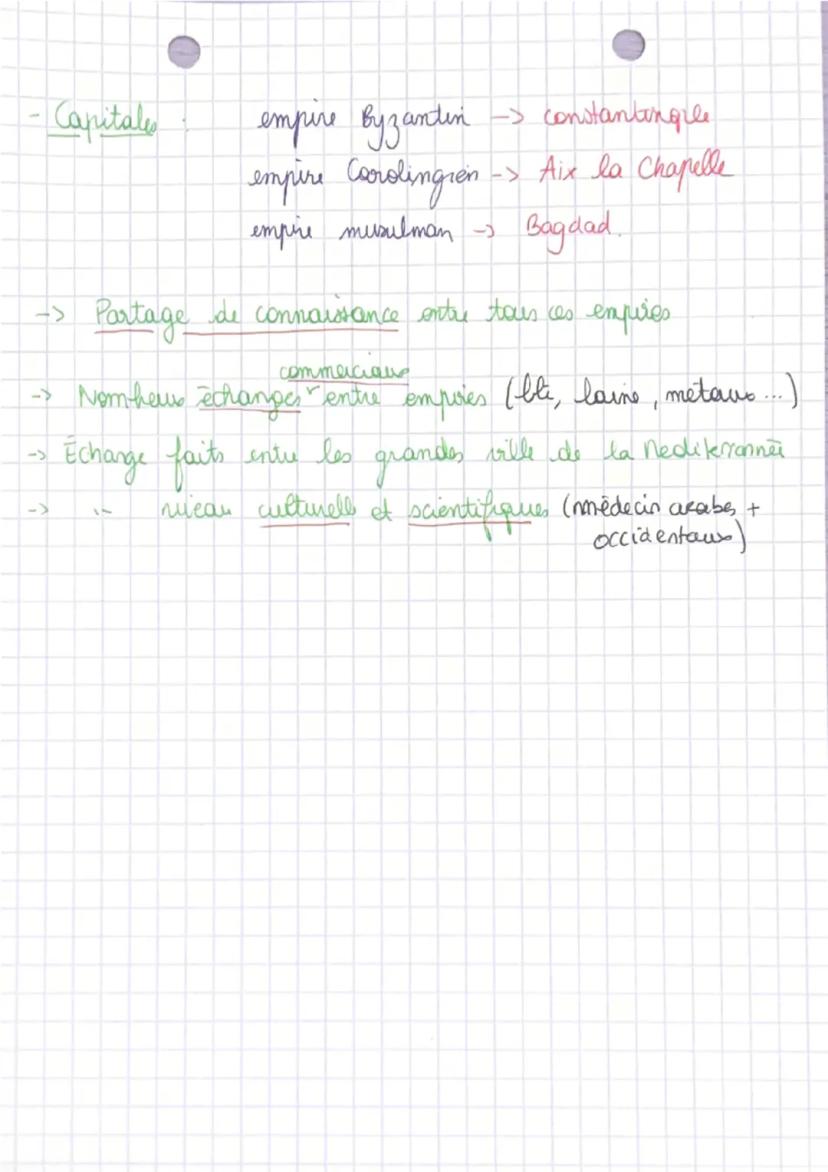 - Capitales : empire Byzantin -> constantinople
empire Carolingien -> Aix la Chapelle
empire musulman -> Bagdad.
-> Partage de connaissance entre tous ces empires
commerciaux
-> Nombreux échanges entre empires (blé, laine, métaux ...)
-> Échange faits entre les grandes ville de la Mediterrannée
-> "- niveau culturells et scientifiques (médecin arabes +
occidentaux)